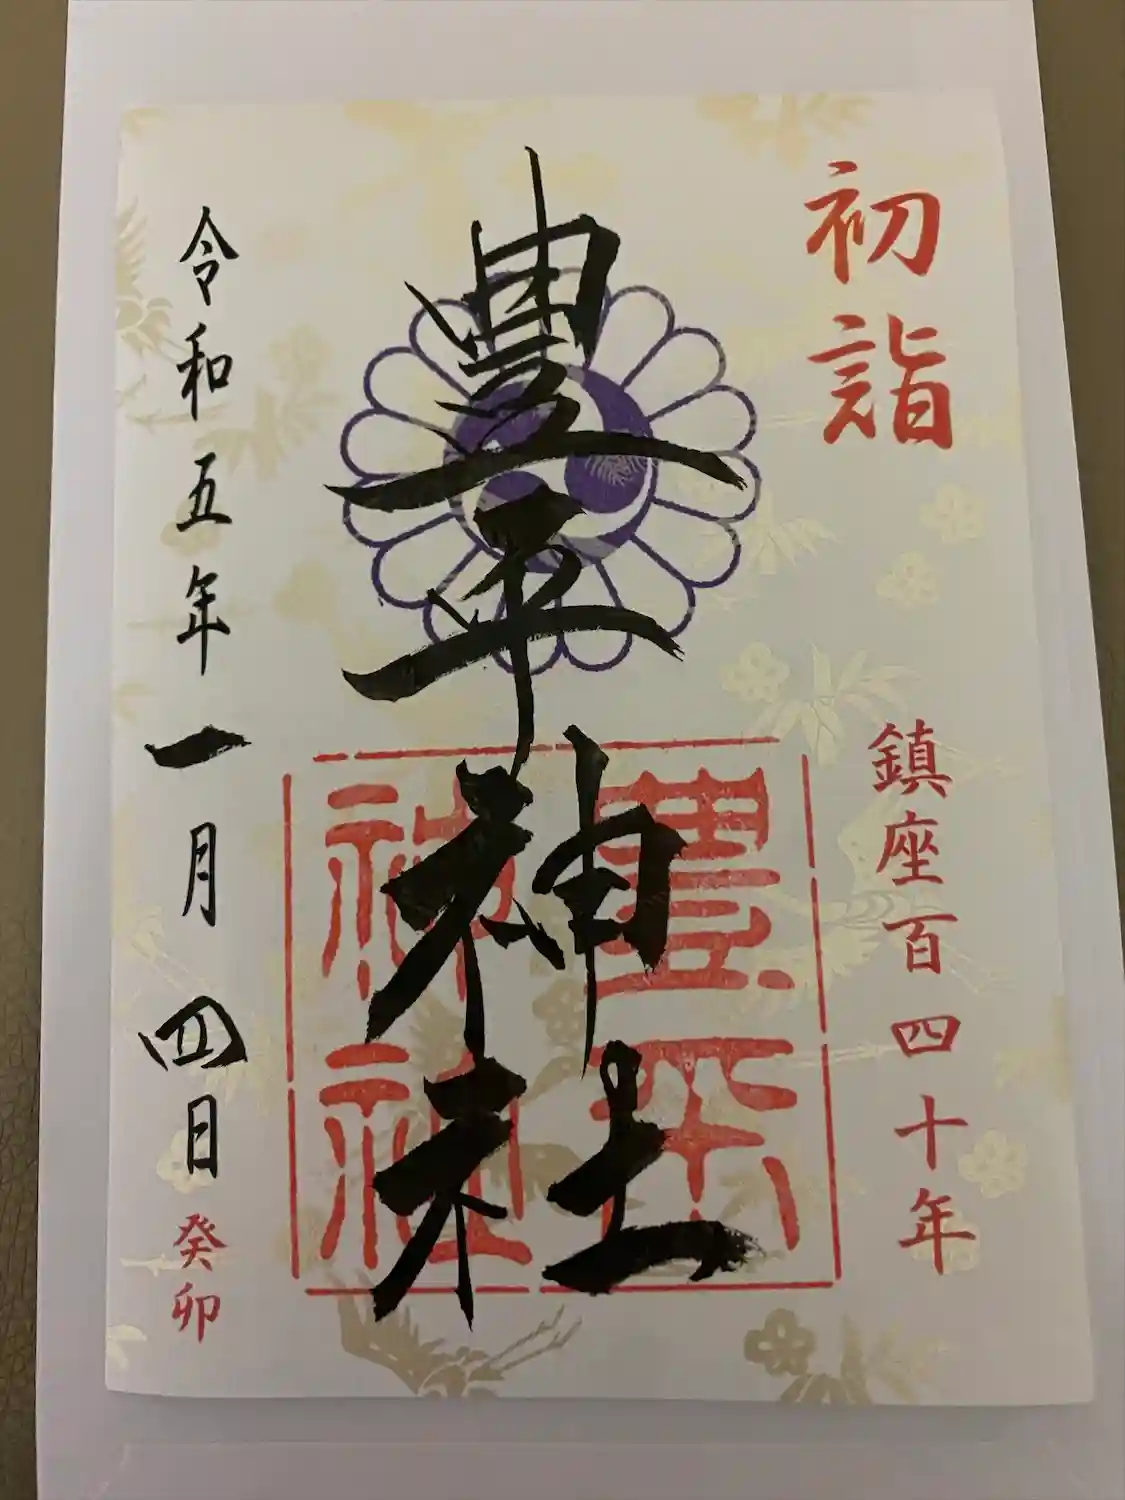 初詣
鎮座百四十年
豊平神社
豊平
神社
令和五年一月四日 癸卯